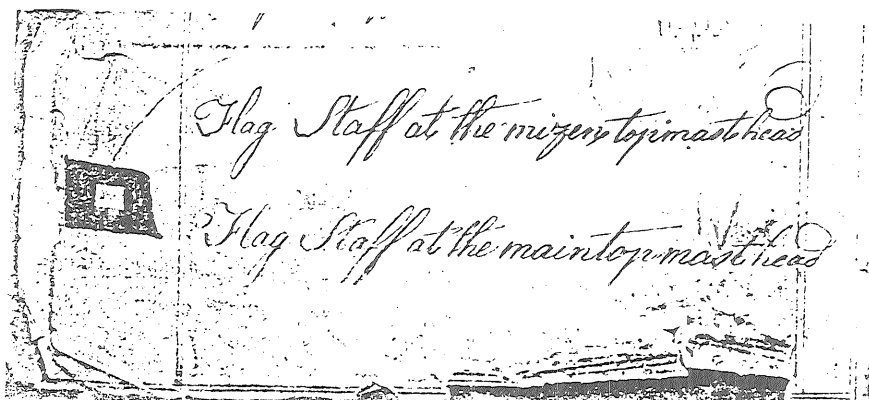 Flag Staff at the mizen topmast head
Flag Staff at the maintopmast head